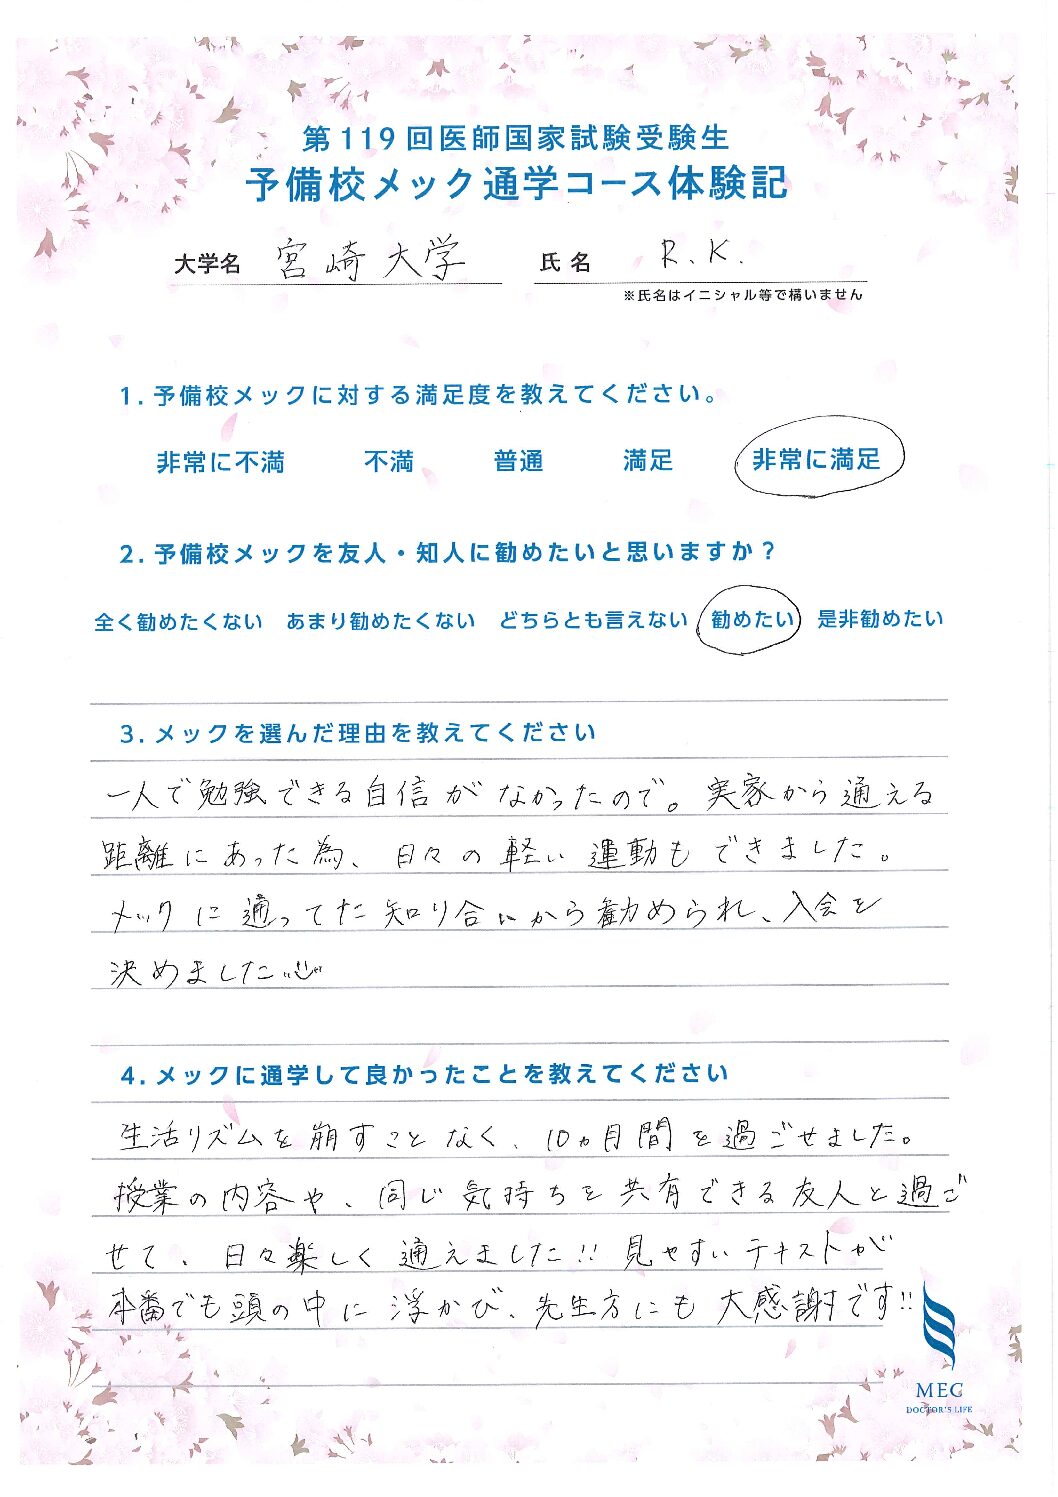 第119回医師国家試験受験生
予備校メック通学コース体験記
大学名 宮崎大学 氏名 R.K.
※氏名はイニシャル等で構いません
1.予備校メックに対する満足度を教えてください。
非常に不満 不満 普通 満足 非常に満足
2.予備校メックを友人・知人に勧めたいと思いますか？
全く勧めたくない あまり勧めたくない どちらとも言えない 勧めたい 是非勧めたい
3.メックを選んだ理由を教えてください
一人で勉強できる自信がなかったので。実家から通える
距離にあった為、日々の軽い運動もできました。
メックに通ってた知り合いから勧められ、入会を
決めました
4.メックに通学して良かったことを教えてください
生活リズムを崩すことなく、10ヵ月間を過ごせました。
授業の内容や、同じ気持ちを共有できる友人と過ご
せて、日々楽しく通えました!! 見やすいテキストが
本番でも頭の中に浮かび、先生方にも大感謝です!!
MEC
DOCTOR'S LIFE